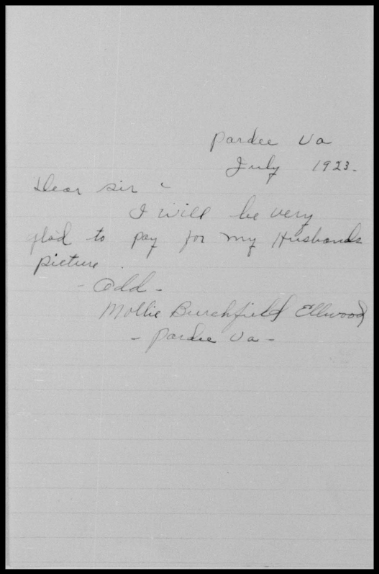 Pardee Va
July 1923.
Dear Sir -
I will be very
glad to pay for my Husbands
picture
- Add -
Mollie Burchfield Ellwood
- Pardee Va -